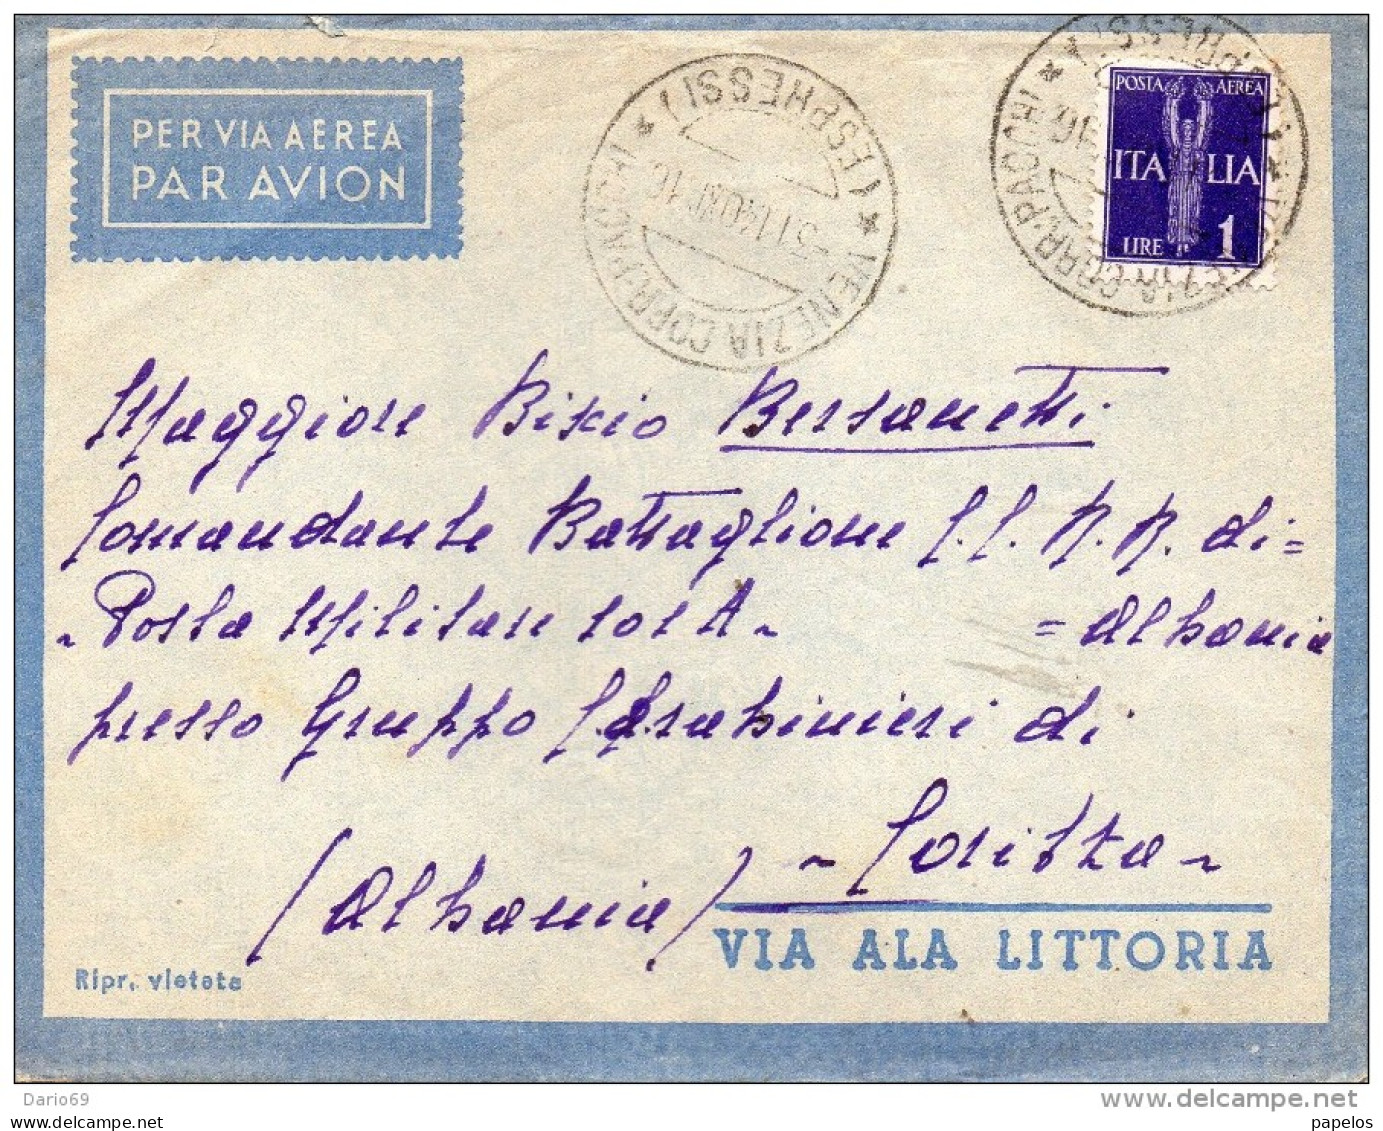 PER VIA AEREA
PAR AVION
VENEZIA CORR. PACCHI (ESPRESSI)
POSTA AEREA
ITALIA
LIRE 1
Maggiore Bixio Bersanetti
Comandante Battaglione C.C. R.R. di=
- Posta Militare 201 A - = Albania
presso Gruppo Carabinieri di
- Coritza -
(Albania)
VIA ALA LITTORIA
Ripr. vietata
Dario69
www.delcampe.net
papelos